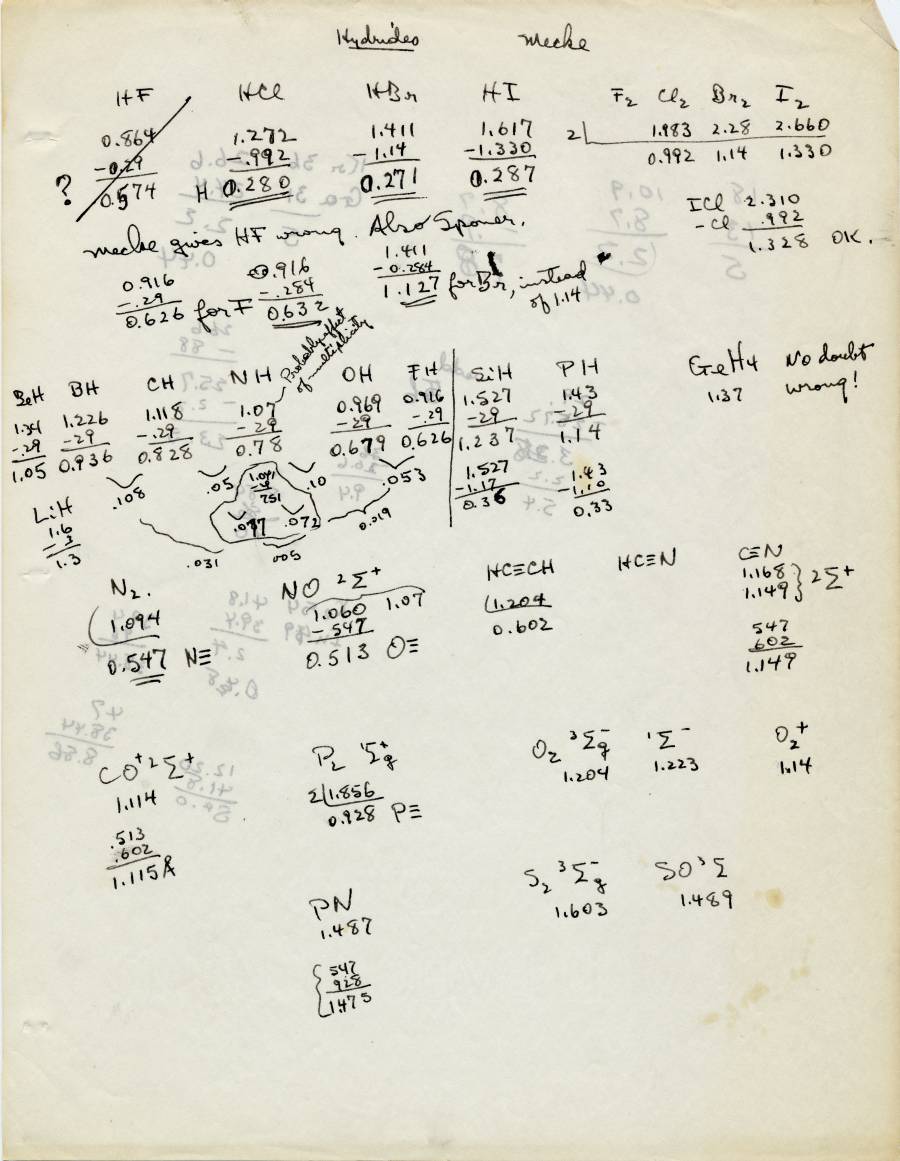 Hydrides Mecke
HF HCl HBr HI F2 Cl2 Br2 I2
0.864 1.272 1.411 1.617 2 1.983 2.28 2.660
-0.29 -.992 -1.14 -1.330 0.992 1.14 1.330
? 0.574 H 0.280 0.271 0.287
ICl 2.310
-Cl .992
1.328 OK.
Mecke gives HF wrong. Also Sponer.
0.916 0.916 1.411
-.29 -.284 -0.284
0.626 for F 0.632 1.127 for Br, instead
of 1.14
Probably effect
of multiplicity
GeH4 No doubt
1.37 wrong!
BeH BH CH NH OH FH SiH PH
1.34 1.226 1.118 1.07 0.969 0.916 1.527 1.43
-.29 -29 -.29 -29 -29 -.29 -29 -29
1.05 0.936 0.828 0.78 0.679 0.626 1.237 1.14
1.527 1.43
-1.17 -1.10
0.36 0.33
.108 .05 .10 .053
1.041
751
.077 .072 0.019
.031 .005
LiH
1.6
-.3
1.3
N2. NO 2Σ+ HC≡CH HC≡N C≡N
1.094 1.060 1.07 1.204 1.168
-.547 0.602 1.149 } 2Σ+
0.547 N≡ 0.513 O≡
547
602
1.149
CO+ 2Σ+ P2 1Σg+ O2 3Σg- 1Σ- O2+
1.114 2 1.856 1.204 1.223 1.14
0.928 P≡
.513
.602
1.115Å
S2 3Σg- SO 3Σ
1.603 1.489
PN
1.487
{ 547
928
1.475